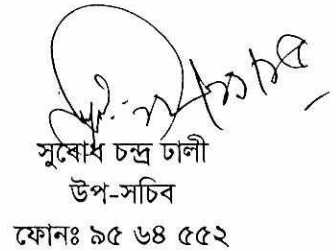 সুবোধ চন্দ্র ঢালী
উপ-সচিব
ফোনঃ ৯৫ ৬৪ ৫৫২